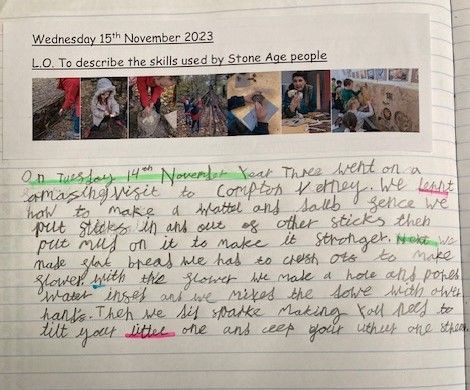 Wednesday 15th November 2023
L.O. To describe the skills used by Stone Age people
On Tuesday 14th November Year Three went on a
amazing visit to Compton Verney. We lernt
how to make a wattel and daub fence we
put sticks in and out of other sticks then
put mud on it to make it stronger. Next we
made flat bread we had to crush ots to make
flower with the flower we made a hole and pored
water insed and we mixed the dowe with ower
hands. Then we did sparks making You need to
tilt your littel one and ceep your uther one